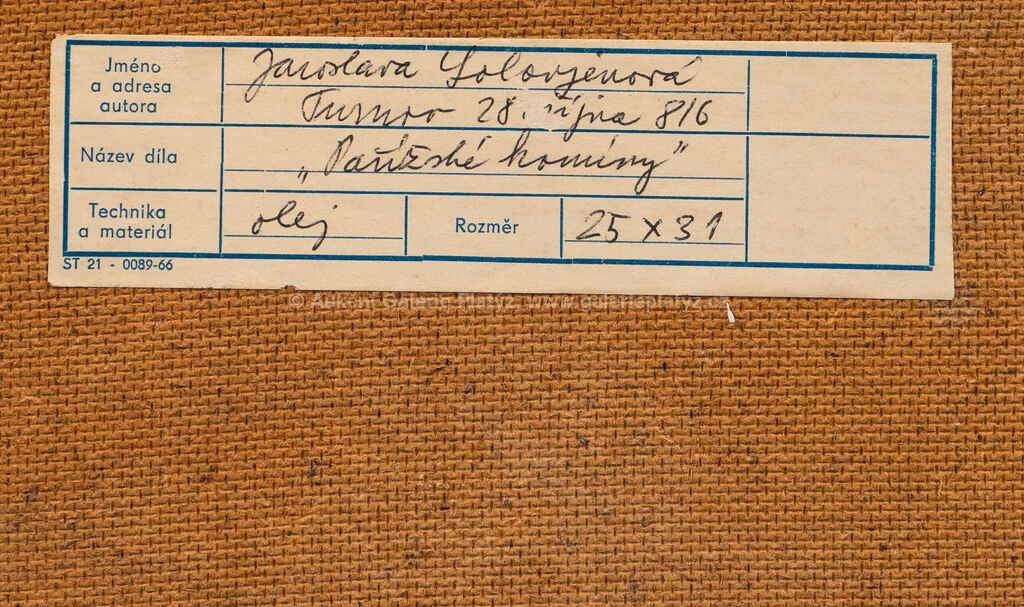 Jméno
a adresa
autora
Jaroslava Solovjénová
Turnov 28. října 816
Název díla
„Pařížské komíny"
Technika
a materiál
olej
Rozměr
25 x 31
ST 21 - 0089-66
© Aukční Galerie Platýz www.galerieplatyz.cz